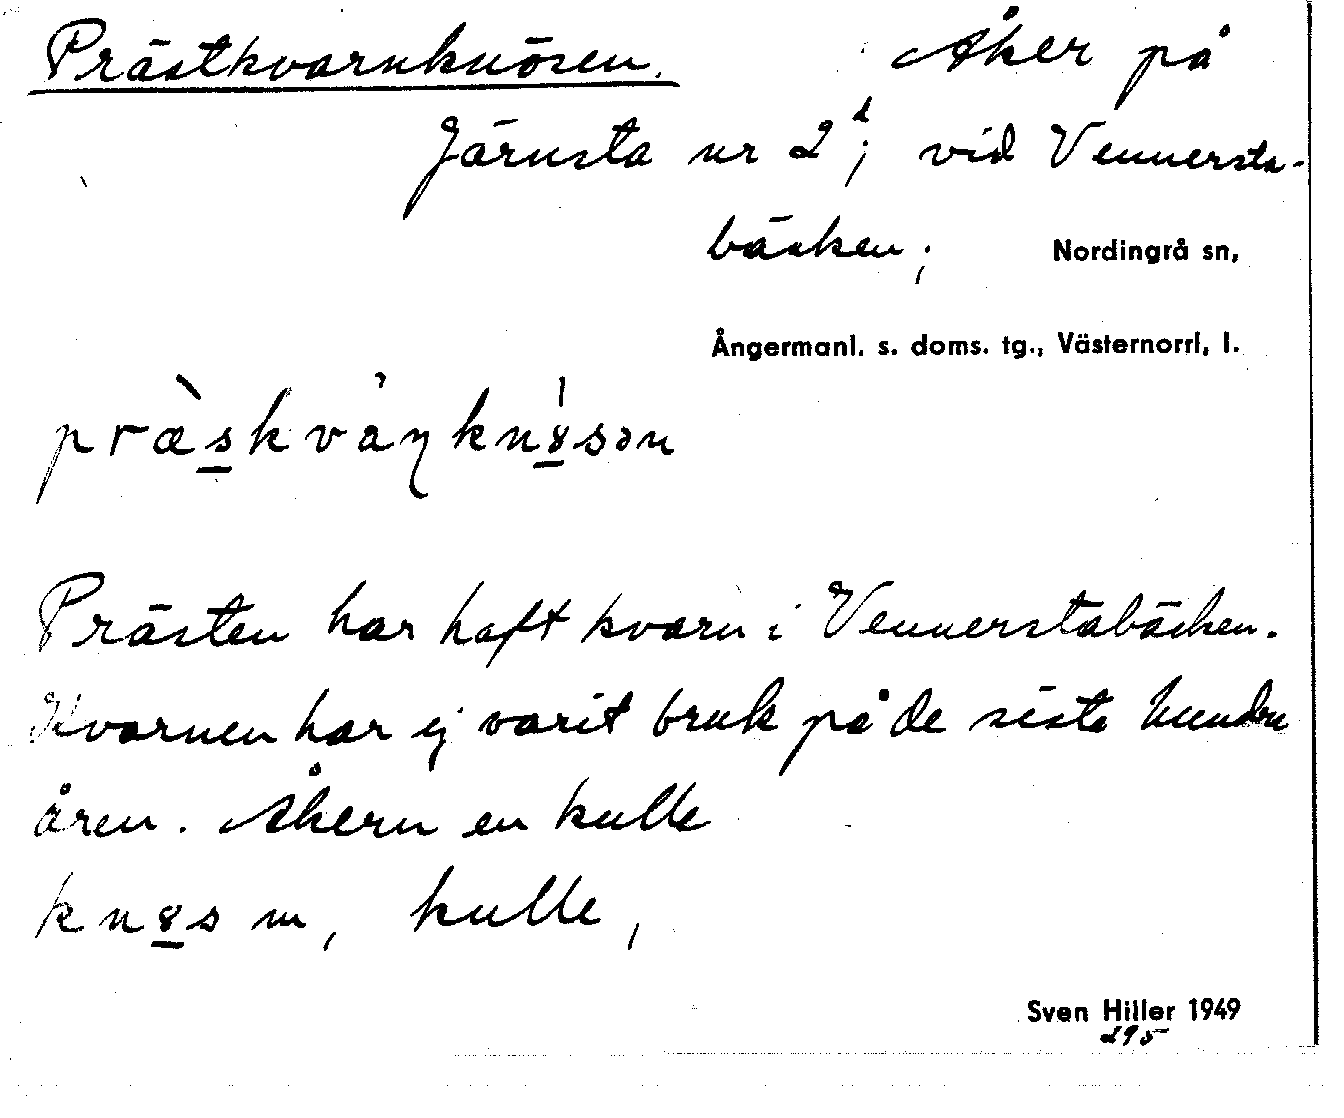 Prästkvarnknösen. Åker på
Järnsta nr 2¹; vid Vennersta-
bäcken; Nordingrå sn,
Ångermanl. s. doms. tg., Västernorrl. l.
præ̀s̲kvàɳknǿ̲sən
Prästen har haft kvarn i Vennerstabäcken.
Kvarnen har ej varit bruk på de sista hundra
åren. Åkern en kulle
knø̲s m, kulle,
Sven Hiller 1949
295